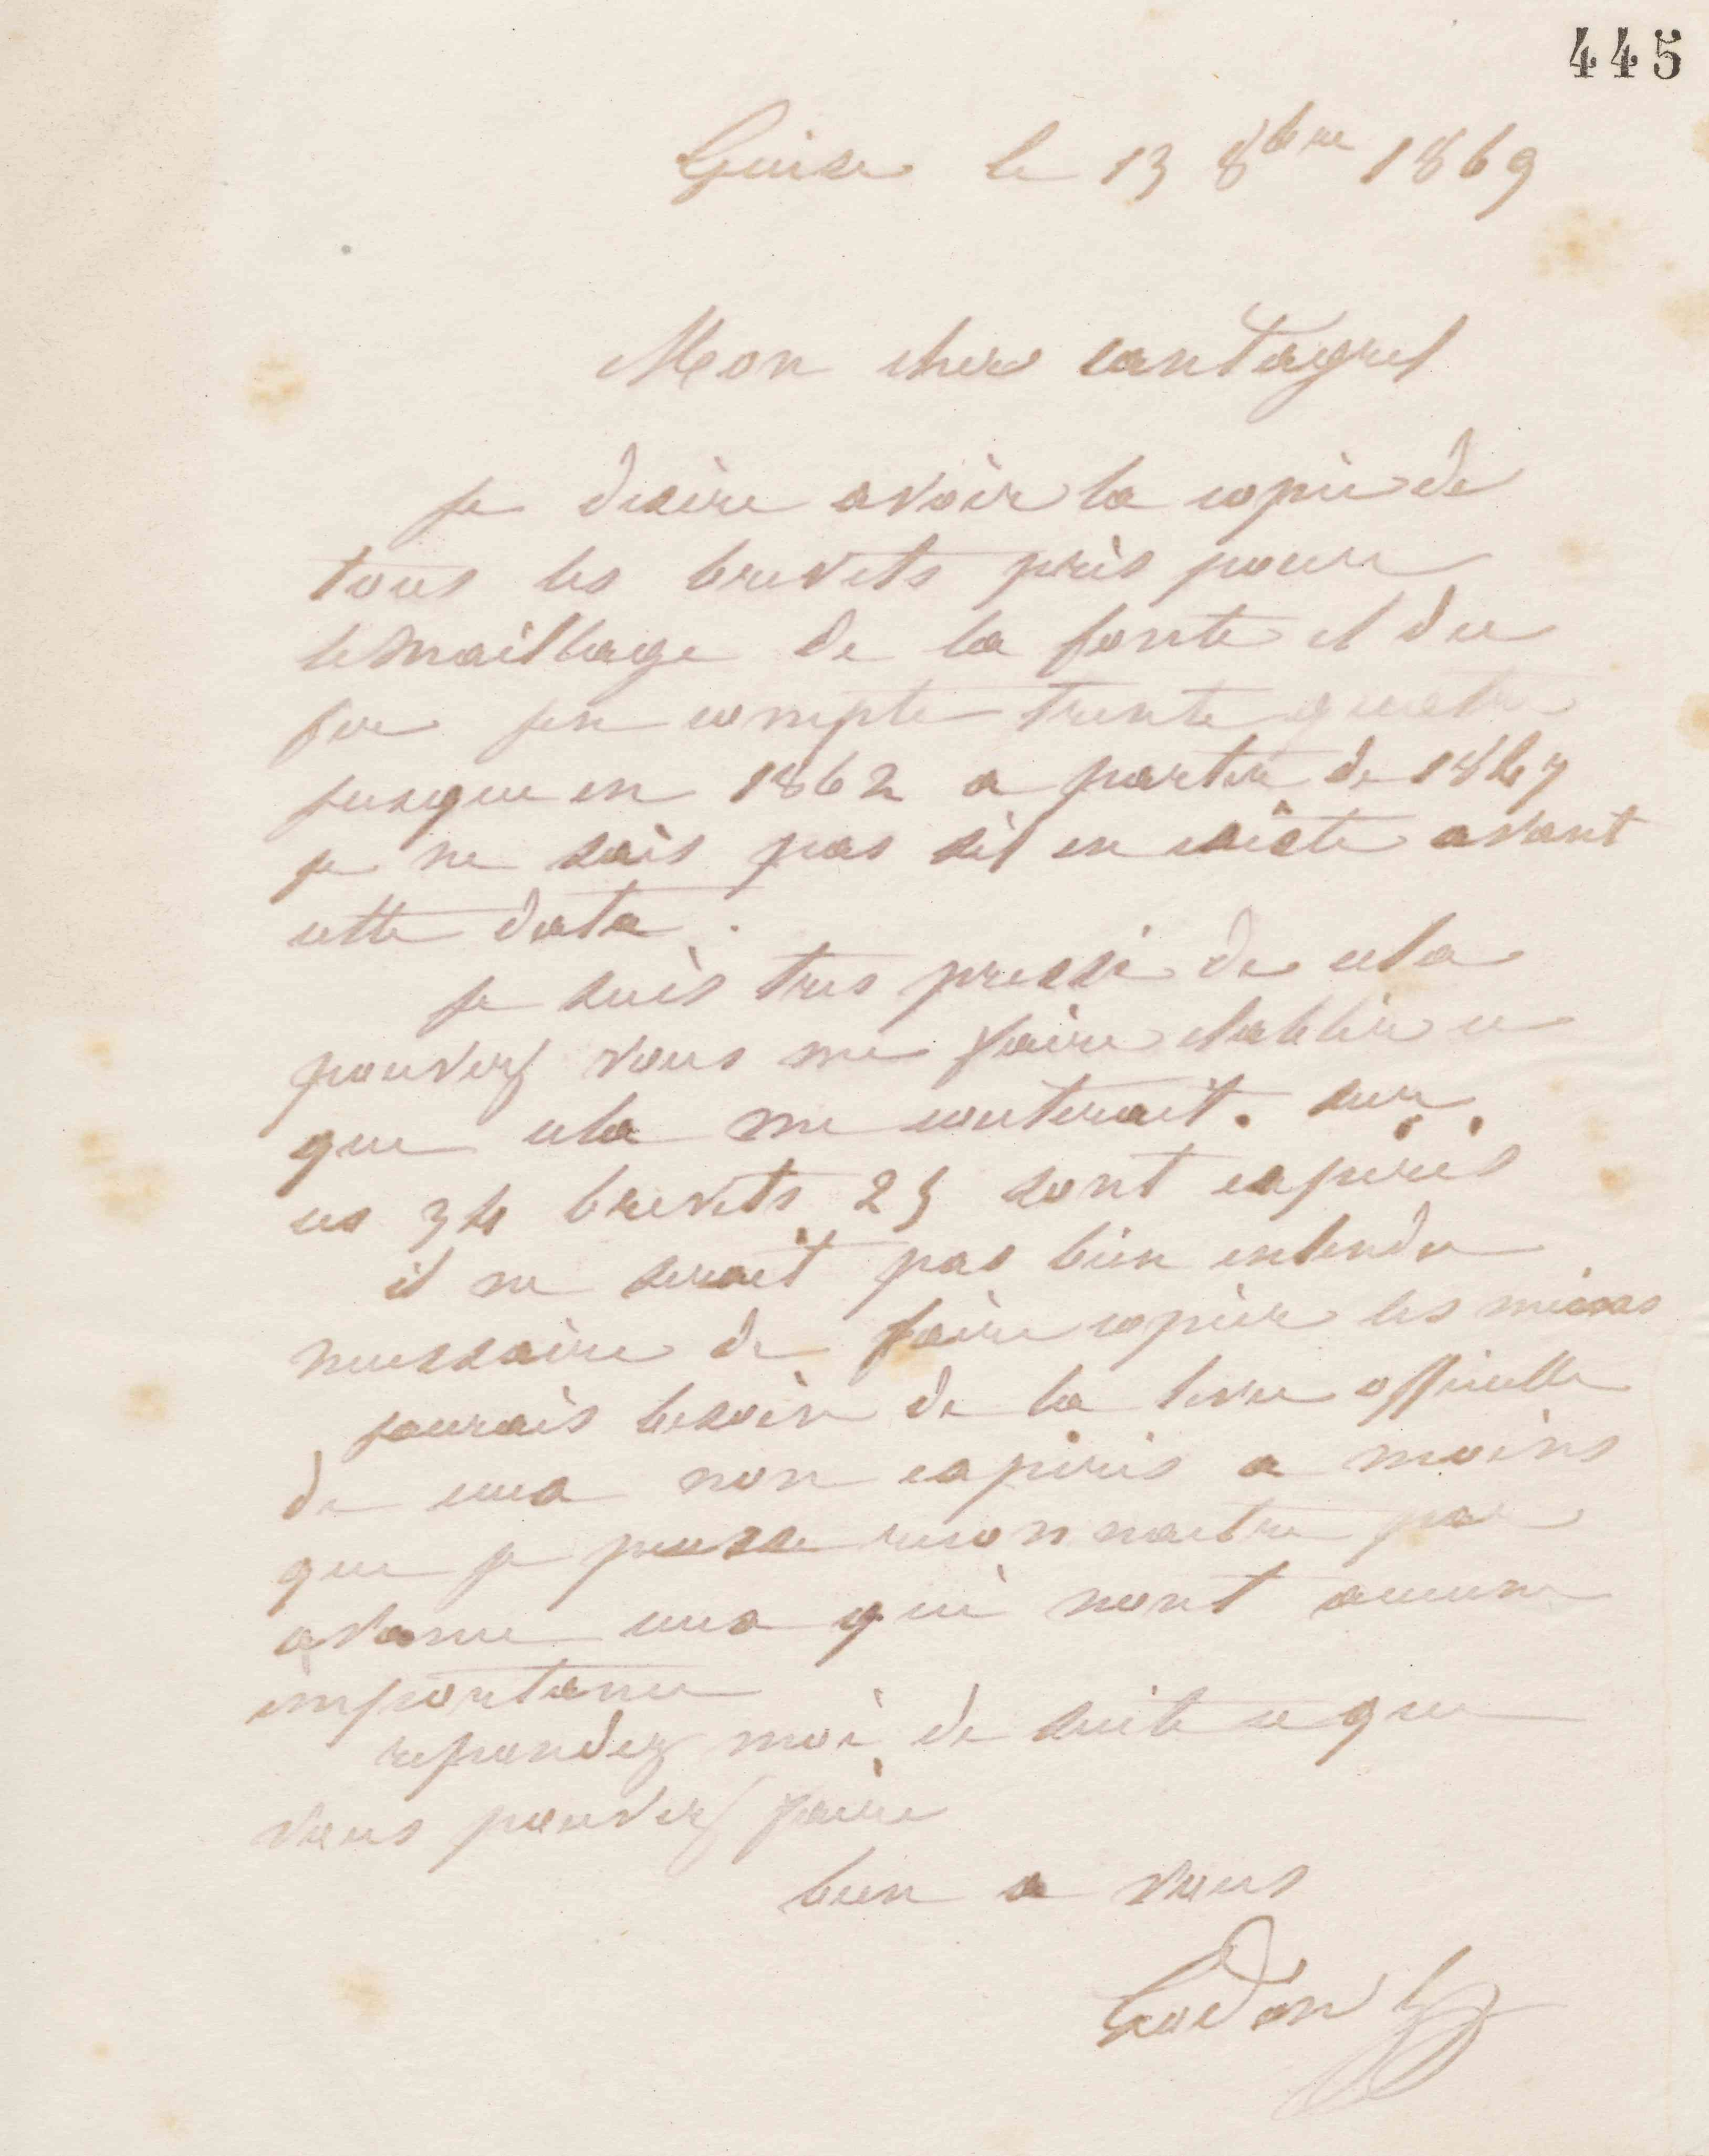 445
Guise le 13 8bre 1869
Mon cher cantagrel
je desire avoir la copie de
tous les brevets pris pour
lemaillage de la fonte et du
fer jen compte trente quatre
jusque en 1862 a partir de 1847
je ne sais pas sil en existe avant
cette date .
je suis tres pressé de cela
pouvez vous me faire etablir ce
que cela me couterait. sur
ces 34 brevets 25 sont expirés
il ne serait pas bien entendu
necessaire de faire copier les
jaurais besoin de la officielle
de ceux non expirés a moins
que je puisse reconnaitre par
avance ceux qui nont aucune
importance
repondez moi de suite ce que
vous pouvez faire
bien a vous
Godin